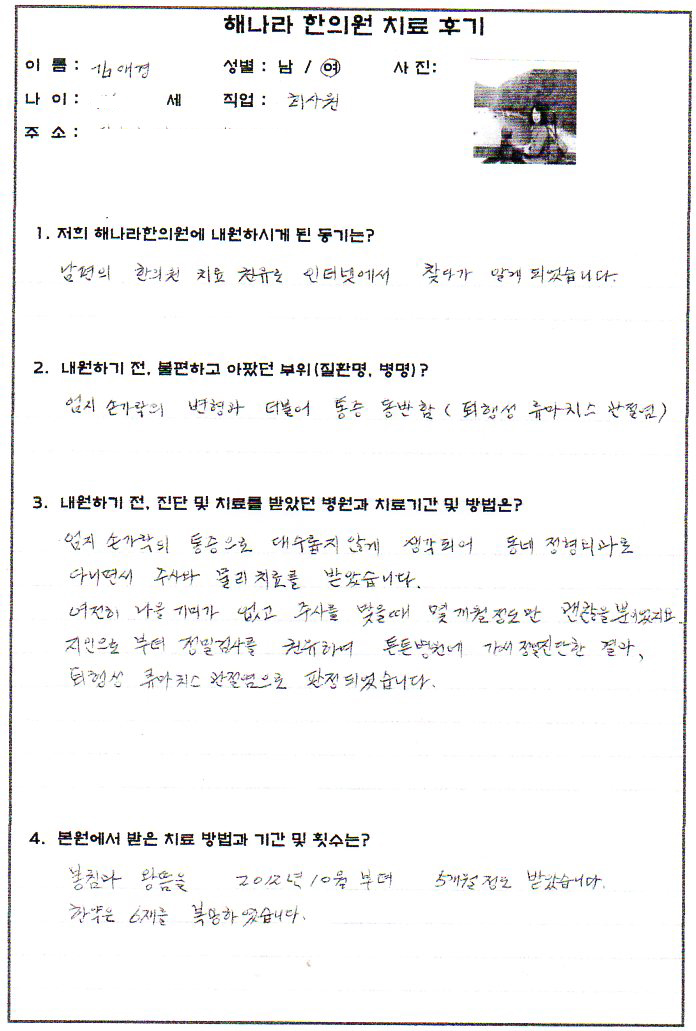 해나라 한의원 치료 후기
이 름 : 김애경 성별 : 남 / 여 사 진:
나 이 : 세 직업 : 회사원
주 소 :
1. 저희 해나라한의원에 내원하시게 된 동기는?
남편의 한의원 치료 권유로 인터넷에서 찾다가 알게 되었습니다.
2. 내원하기 전, 불편하고 아팠던 부위(질환명, 병명)?
엄지 손가락의 변형과 더불어 통증 동반함 ( 퇴행성 류마치스 관절염 )
3. 내원하기 전, 진단 및 치료를 받았던 병원과 치료기간 및 방법은?
엄지 손가락의 통증으로 대수롭지 않게 생각되어 동네 정형외과로
다니면서 주사와 물리치료를 받았습니다.
여전히 나을 기미가 없고 주사를 맞을때 몇 개월 정도만 괜찮을 뿐이었지요.
지인으로 부터 정밀검사를 권유하여 튼튼병원에 가서 정밀진단한 결과,
퇴행성 류마치스 관절염으로 판정되었습니다.
4. 본원에서 받은 치료 방법과 기간 및 횟수는?
봉침과 왕뜸을 2012년 10월 부터 5개월 정도 받았습니다.
한약은 6재를 복용하였습니다.